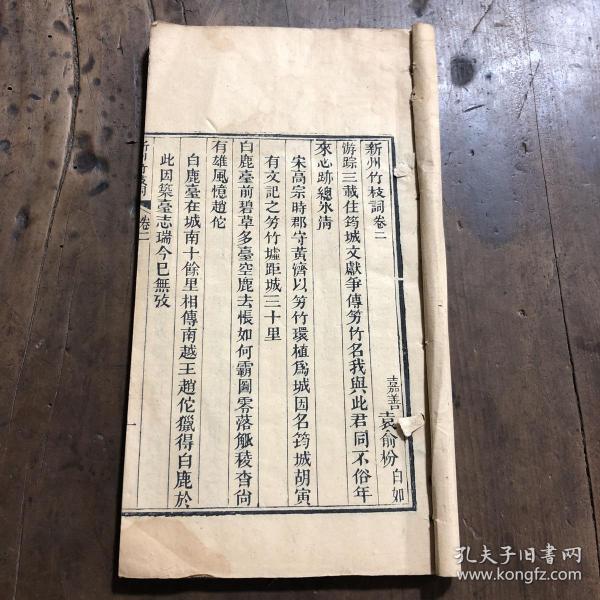 新州竹枝詞卷二
嘉善袁俞枌白如
游踪三載住筠城文獻爭傳竻竹名我與此君同不俗年
來心跡總冰清
宋高宗時郡守黃濟以竻竹環植爲城因名筠城胡寅
有文記之竻竹墟距城三十里
白鹿臺前碧草多臺空鹿去悵如何霸圖零落觚稜杳尙
有雄風憶趙佗
白鹿臺在城南十餘里相傳南越王趙佗獵得白鹿於
此因築臺志瑞今已無攷
新州竹枝詞
卷二
一
孔夫子旧书网
www.kongfz.com